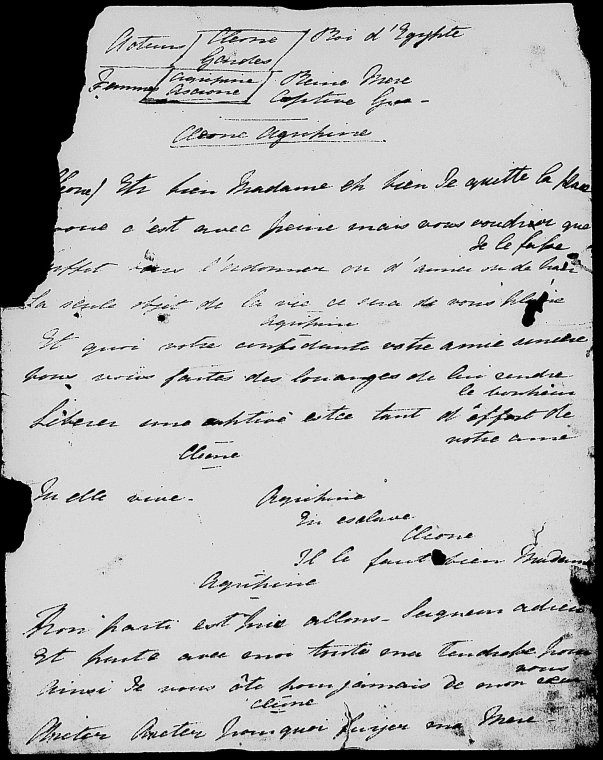 Acteurs Cleone Roi d'Egypte
Gardes
Femmes Agripine Reine Mere
Ascione Captive Gre-
Cleone Agripine
Cleone) Eh bien Madame eh bien Je quitte la place
c'est avec peine mais vous voudrier que
Je le fasse
suffit vous l'ordonner ou d'aimer ou de hair
La seule objet de la vie ce sera de vous
Agripine
Et quoi votre confidente votre amie sincere
vous vous faites des louanges de lui rendre
le bonheur
Liberer une captive estce tant d'effort de
votre ame
Cleone
Qu elle vive -
Agripine
En esclave
Cleone
Il le faut bien Madame
Agripine
Mon parti est pris allons - Seigneur adieu
Et parte avec moi toute ma Tendresse pour
vous
Ainsi Je vous ôte pour jamais de mon
Cleone
Areter Areter pourquoi fuijer ma Mere -